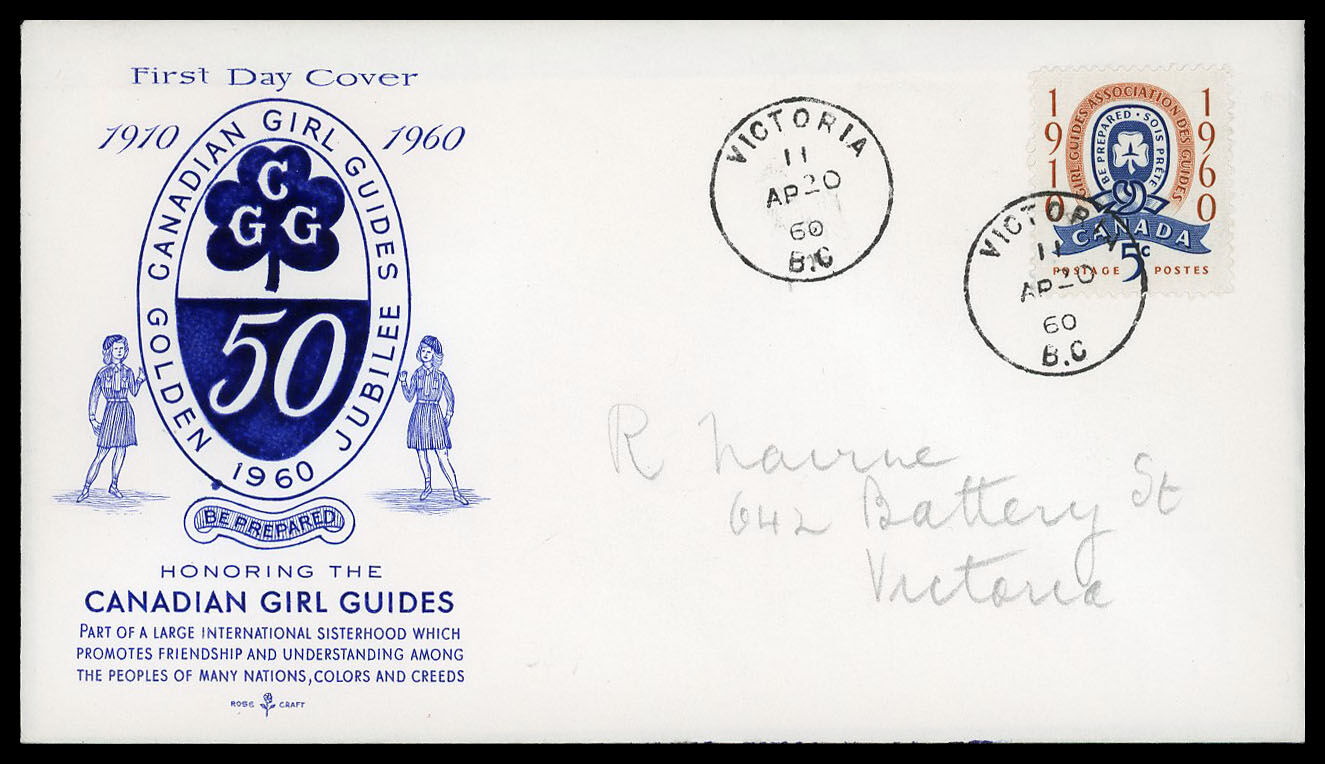 First Day Cover
1910 1960
CANADIAN GIRL GUIDES
GOLDEN JUBILEE
1960
C
G G
50
BE PREPARED
HONORING THE
CANADIAN GIRL GUIDES
PART OF A LARGE INTERNATIONAL SISTERHOOD WHICH
PROMOTES FRIENDSHIP AND UNDERSTANDING AMONG
THE PEOPLES OF MANY NATIONS, COLORS AND CREEDS
ROSE CRAFT
VICTORIA
11
AP 20
60
B.C
1910 1960
GIRL GUIDES ASSOCIATION DES GUIDES
BE PREPARED · SOIS PRÊTE
CANADA
POSTAGE 5c POSTES
VICTORIA
11
AP 20
60
B.C
R Nairne
642 Battery St
Victoria